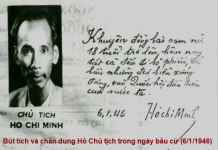 Khuyên đồng bào nam nữ
18 tuổi trở lên, hôm nay
tất cả đều đi bỏ phiếu,
bầu những đại biểu xứng
đáng, vào Quốc hội đầu tiên
của nước ta
6.1.46 Hồ Chí Minh
CHỦ TỊCH
HỒ CHÍ MINH
Bút tích và chân dung Hồ Chủ tịch trong ngày bầu cử (6/1/1946)